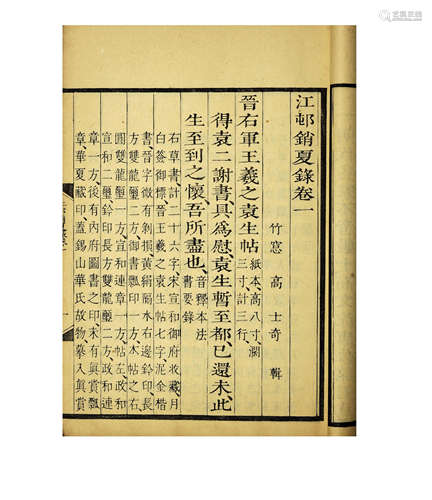 江邨銷夏錄卷一
竹窓 高士奇 輯
晉右軍王羲之袁生帖 紙本高八寸濶
三寸計三行
得袁二謝書具爲慰袁生暫至都已還未此
生至到之懷吾所盡也 音釋本法
書要錄
右草書計二十六字宋宣和御府收藏月
白簽御標晉王羲之袁生帖七字泥金楷
書晉字微有剝損黃絹隔水右邊鈐印長
方雙龍璽一方御書瓢印一方本帖之右
圓雙龍璽一方宣和連章一方帖左政和
宣和二璽鈐印長方雙龍璽二方政和連
章一方後有內府圖書之印末有眞賞瓢
章華夏藏印蓋錫山華氏故物摹入眞賞